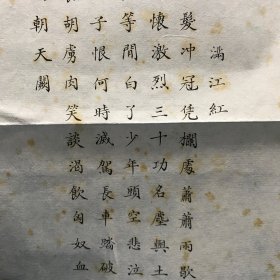 滿江紅
髮冲冠凭欄處蕭蕭雨歇
懷激烈三十功名塵與土
等閒白了少年頭空悲泣
子恨何時滅駕長車踏破
胡虜肉笑談渴飲匈奴血
朝天闕